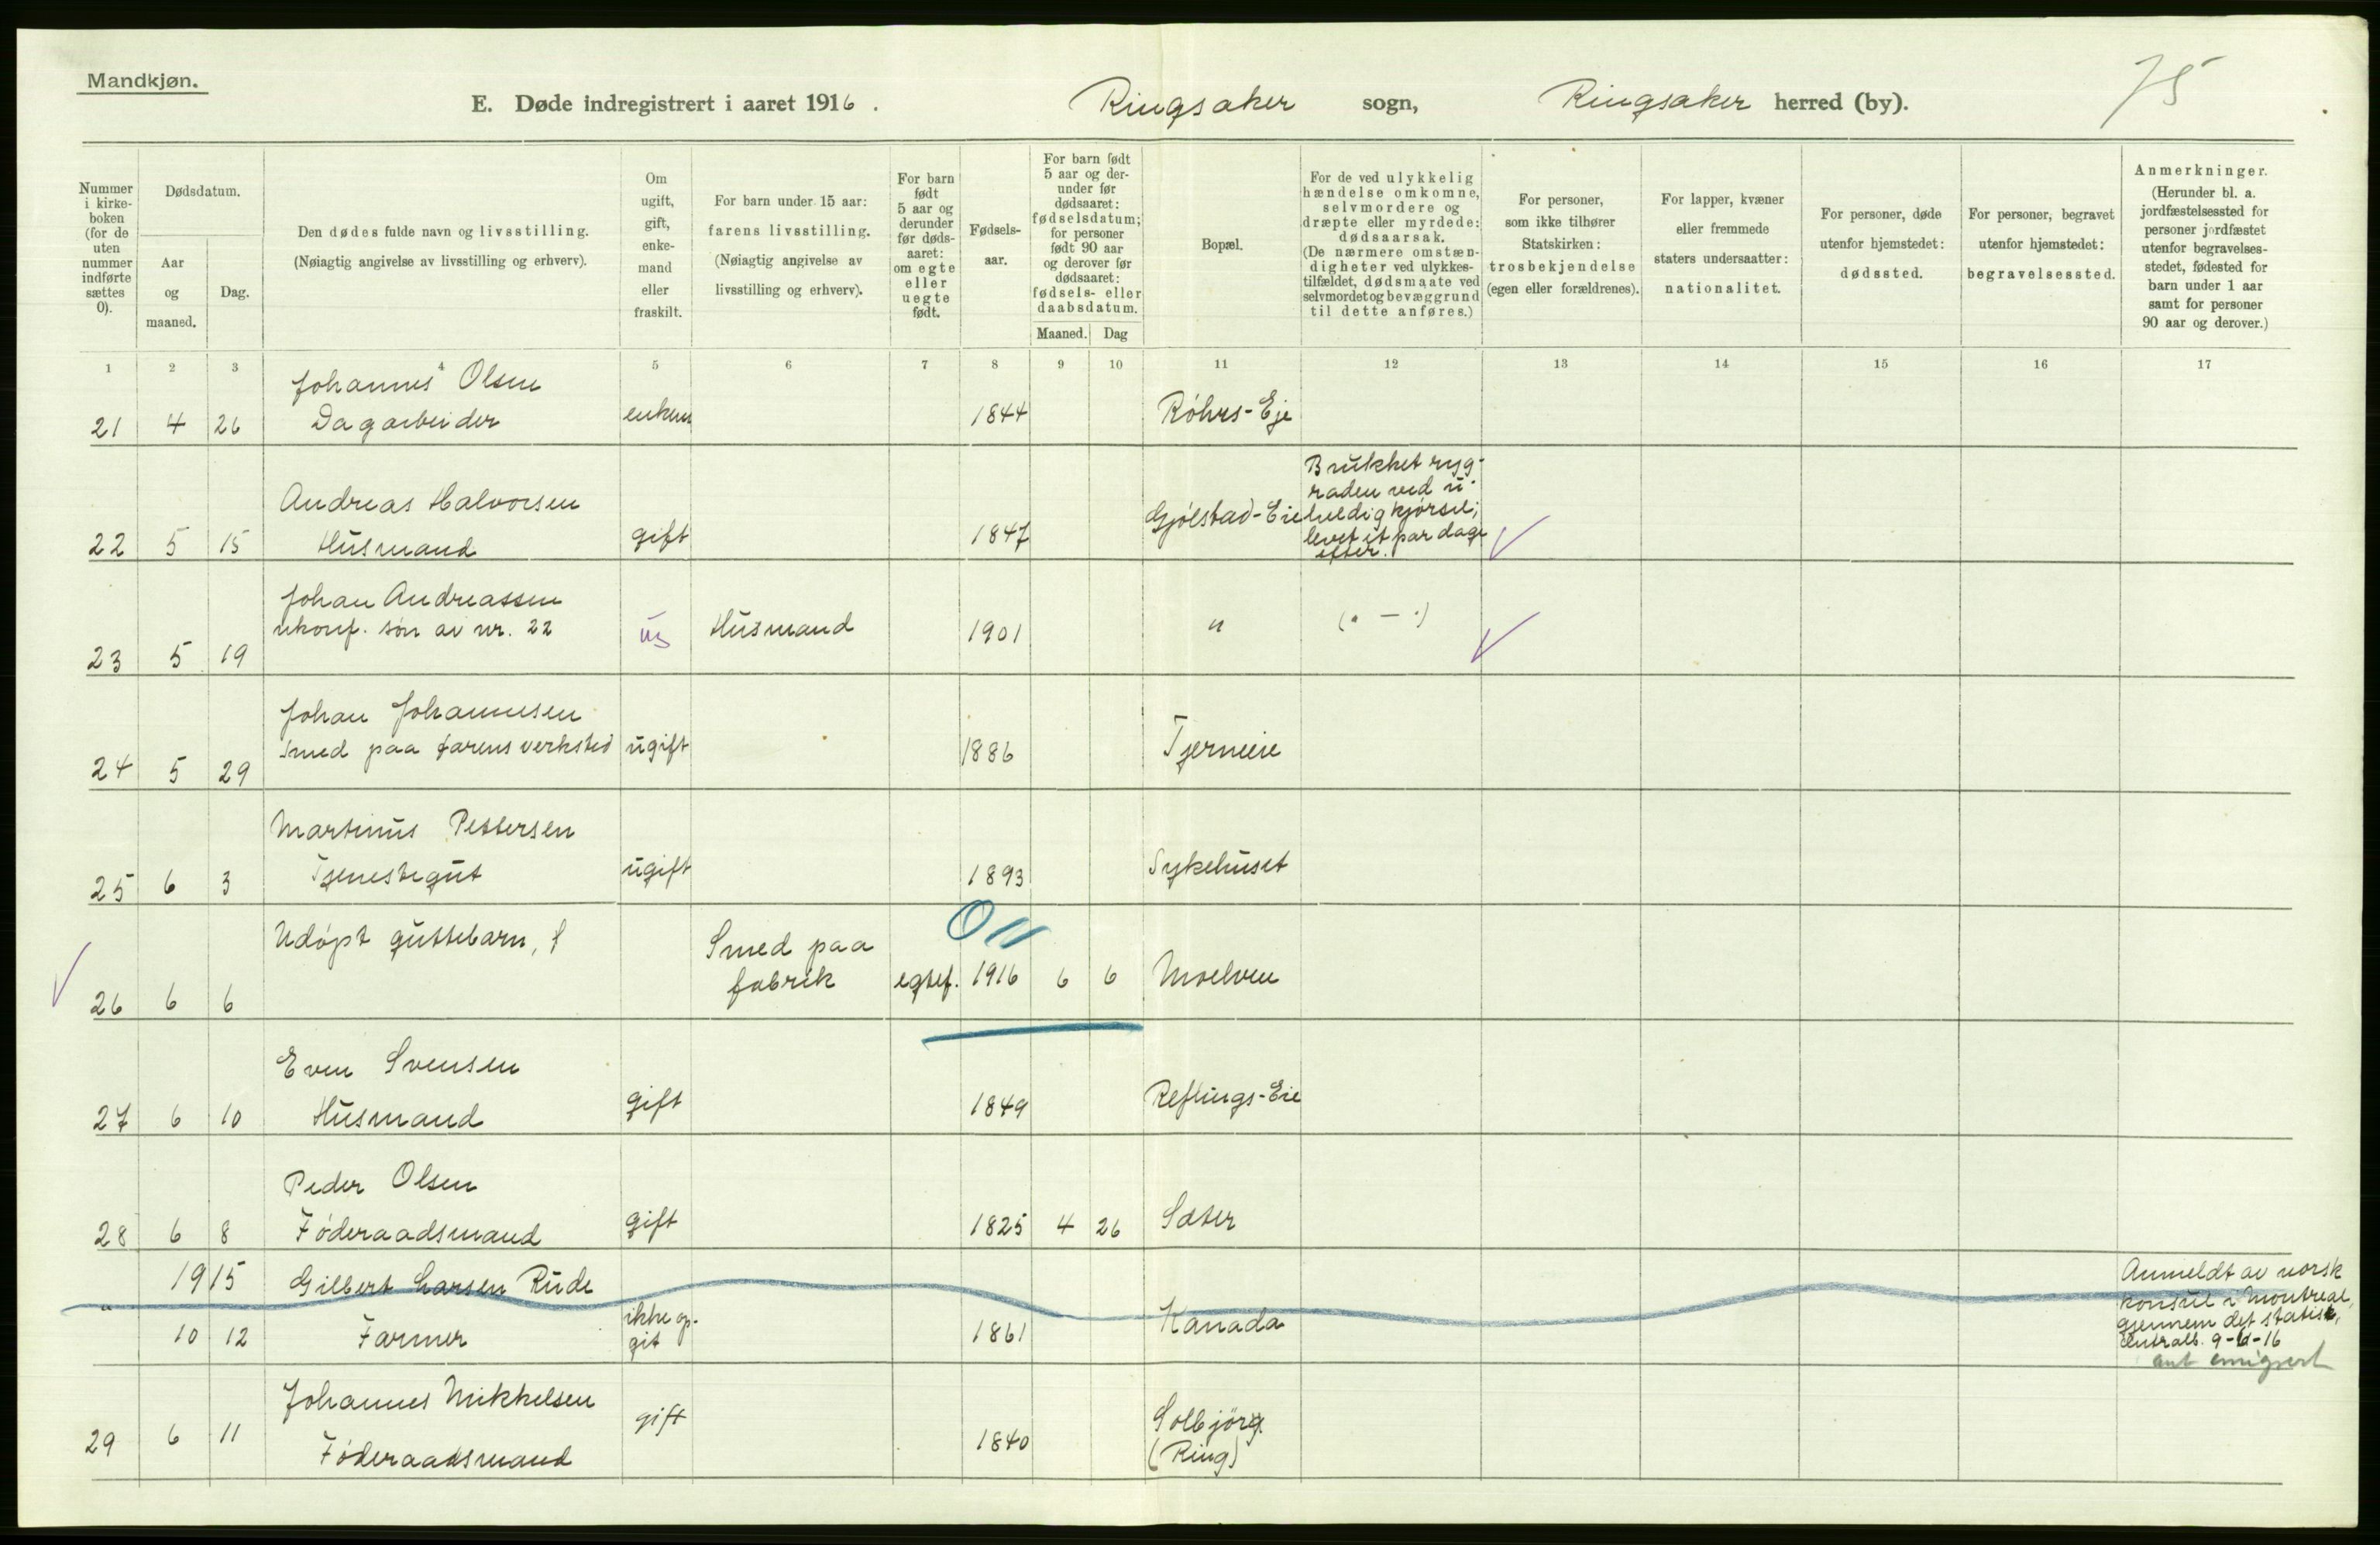 Mandkjøn.
75
E. Døde indregistrert i aaret 1916. Ringsaker sogn, Ringsaker herred (by).
Nummer i kirke-boken (for de uten nummer indførte sættes 0).
Dødsdatum.
Aar og maaned.
Dag.
Den dødes fulde navn og livsstilling.
(Nøiagtig angivelse av livsstilling og erhverv).
Om ugift, gift, enke-mand eller fraskilt.
For barn under 15 aar: farens livsstilling.
(Nøiagtig angivelse av livsstilling og erhverv).
For barn født 5 aar og derunder før døds-aaret: om egte eller uegte født.
Fødsels-aar.
For barn født 5 aar og der-under før dødsaaret: fødselsdatum; for personer født 90 aar og derover før dødsaaret: fødsels- eller daabsdatum.
Maaned. Dag
Bopæl.
For de ved ulykkelig hændelse omkomne, selvmordere og dræpte eller myrdede: dødsaarsak.
(De nærmere omstæn-digheter ved ulykkes-tilfældet, dødsmaate ved selvmordet og bevæggrund til dette anføres.)
For personer, som ikke tilhører Statskirken: trosbekjendelse (egen eller forældrenes).
For lapper, kvæner eller fremmede staters undersaatter: nationalitet.
For personer, døde utenfor hjemstedet: dødssted.
For personer, begravet utenfor hjemstedet: begravelsessted.
Anmerkninger.
(Herunder bl. a. jordfæstelsessted for personer jordfæstet utenfor begravelses-stedet, fødested for barn under 1 aar samt for personer 90 aar og derover.)
1 2 3 4 5 6 7 8 9 10 11 12 13 14 15 16 17
Johannes Olsen
21 4 26 Dagarbeider enkem 1844 Röhrs-Eje
Brukket ryg-
raden ved u-
Andreas Halvorsen Gjölstad-Eie heldig kjörsel;
22 5 15 Husmand gift 1847 levet et par dage
efter.
Johan Andreassen
ukonf. sön av nr. 22 ug Husmand 1901 " (" — ")
23 5 19
Johan Johannesen
24 5 29 Smed paa farens verksted ugift 1886 Tjerneie
Martinus Pettersen
25 6 3 Tjenestegut ugift 1893 Sykehuset
Udöpt guttebarn, Smed paa
26 6 6 fabrik egtef. 1916 6 6 Moelven
Even Svensen
27 6 10 Husmand gift 1849 Reflings-Eie
Peder Olsen
28 6 8 Föderaadsmand gift 1825 4 26 Sæter
1915 Gilbert Larsen Rude Anmeldt av norsk
" ikke op- konsul i Montreal,
10 12 Farmer git 1861 Kanada gjennem det statist.
centralb. 9-6-16
ant emigrert
Johannes Mikkelsen
29 6 11 gift 1840 Solbjörg
Föderaadsmand (Ring)